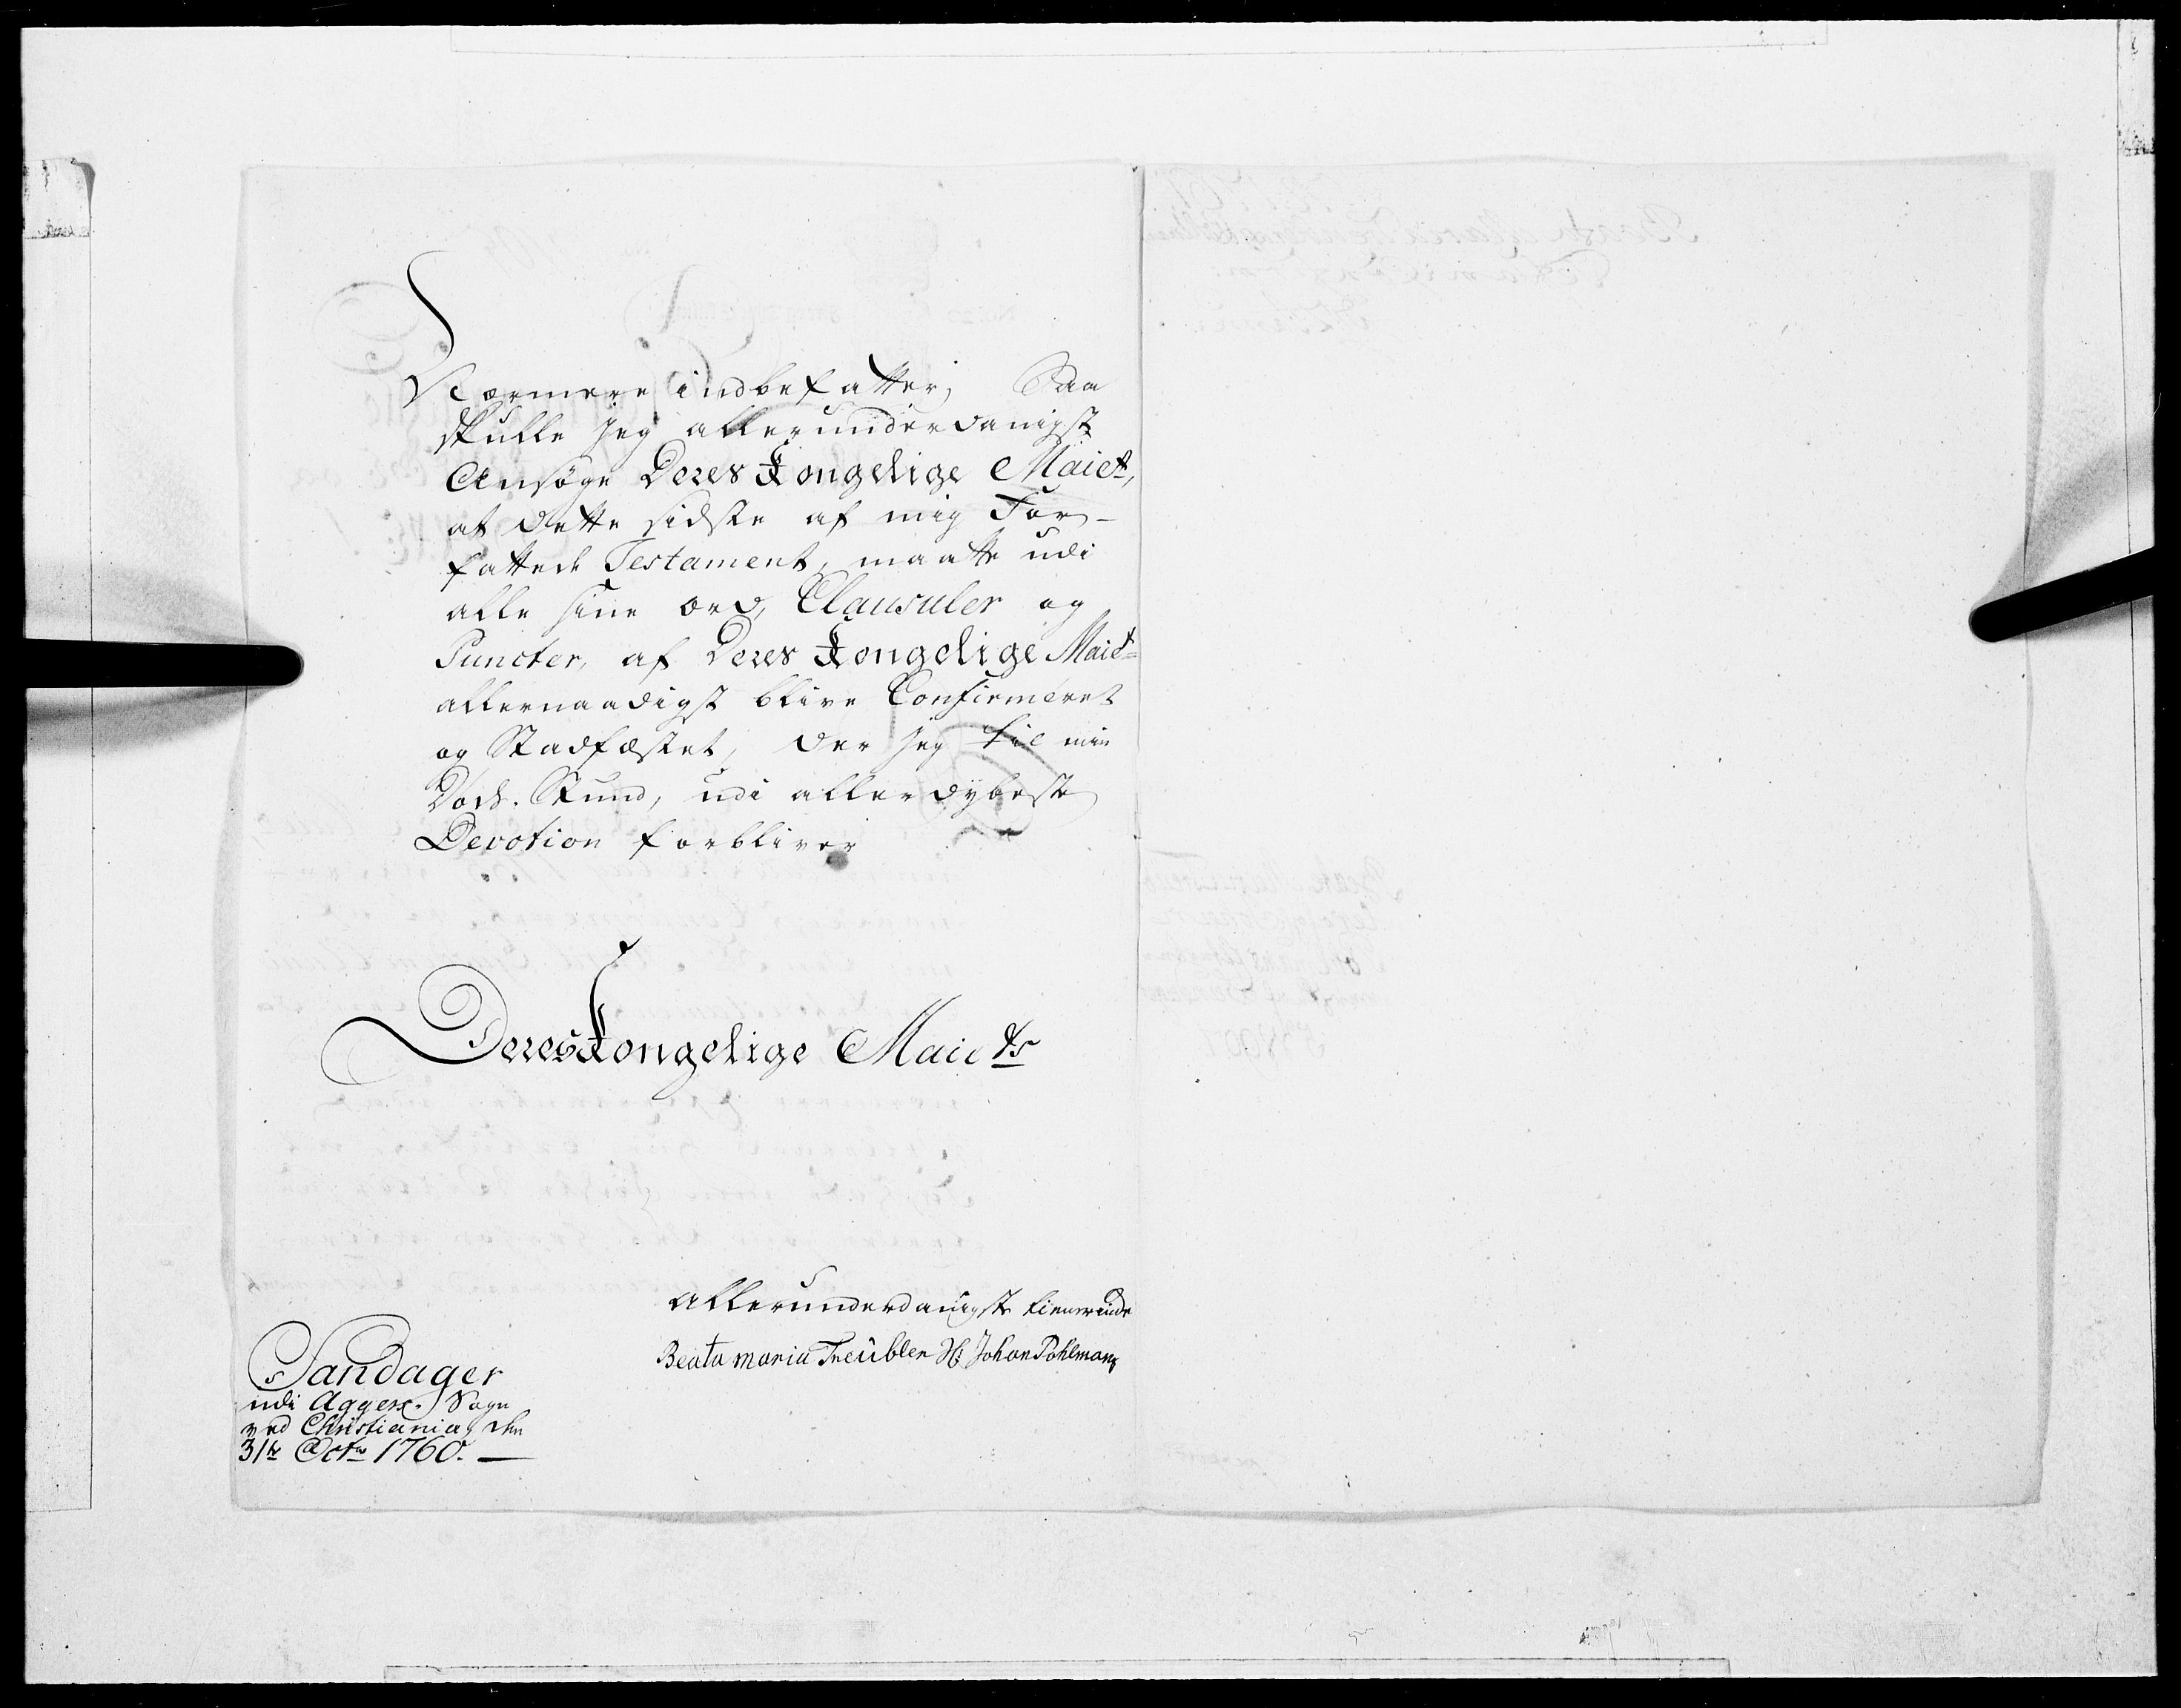 Nærmere indbefatter, Saa
skulle jeg allerunderdanigst
Ansøge Deres Kongelige Maiet,
at dette sidste af mig For-
fattede Testament, maatte udi
alle sine ord, Clausuler og
Puncter, af Deres Kongelige Maiet
allernaadigst blive Confirmeret
og Stadfæstet, der jeg til min
Døds. Stund, udi allerdybeste
Devotion forbliver
Deres Kongelige Maiets
allerunderdanigste tienerinde
Beata maria Treübler Johan Pohlmans
Sandager
udi Aggers Sogn
ved Christiania, den
31te Octr 1760.